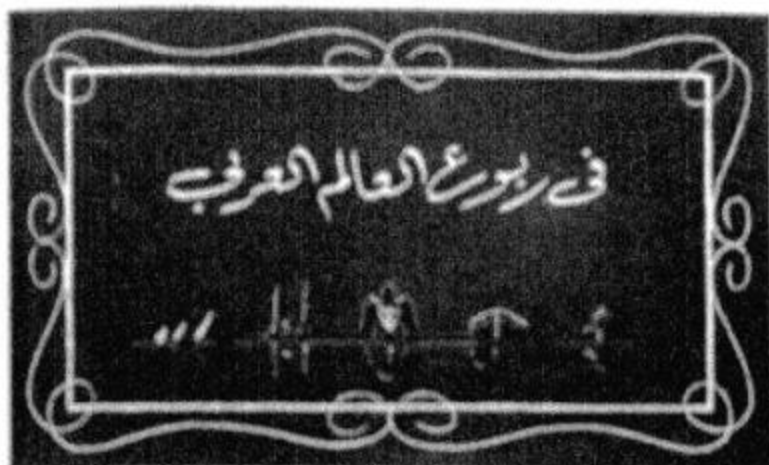 فى ربوع العالم العربي